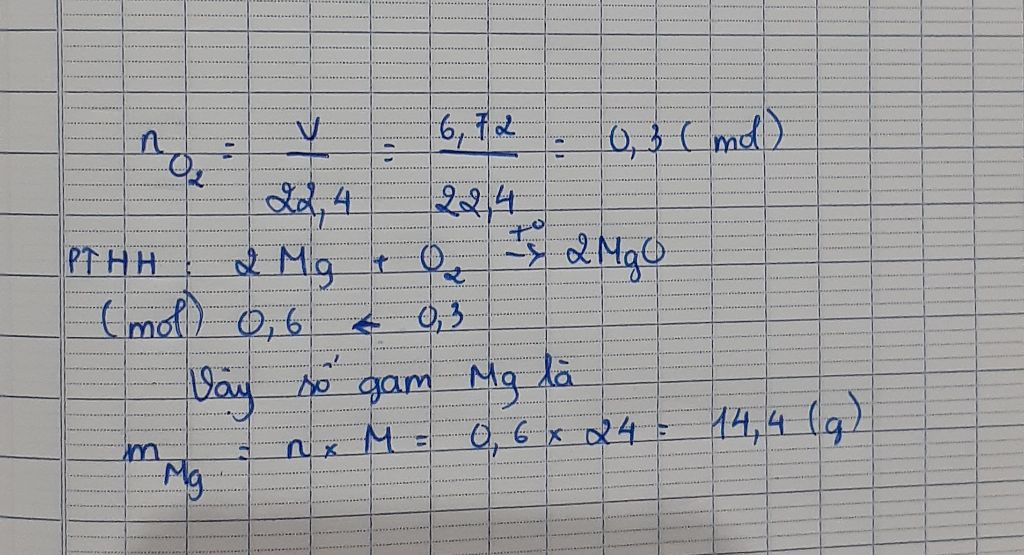 n O₂ = V/22,4 = 6,72/22,4 = 0,3 (mol)
PTHH : 2 Mg + O₂ t° → 2MgO
(mol) 0,6 ← 0,3
Vậy số gam Mg là
m Mg = n × M = 0,6 × 24 = 14,4 (g)